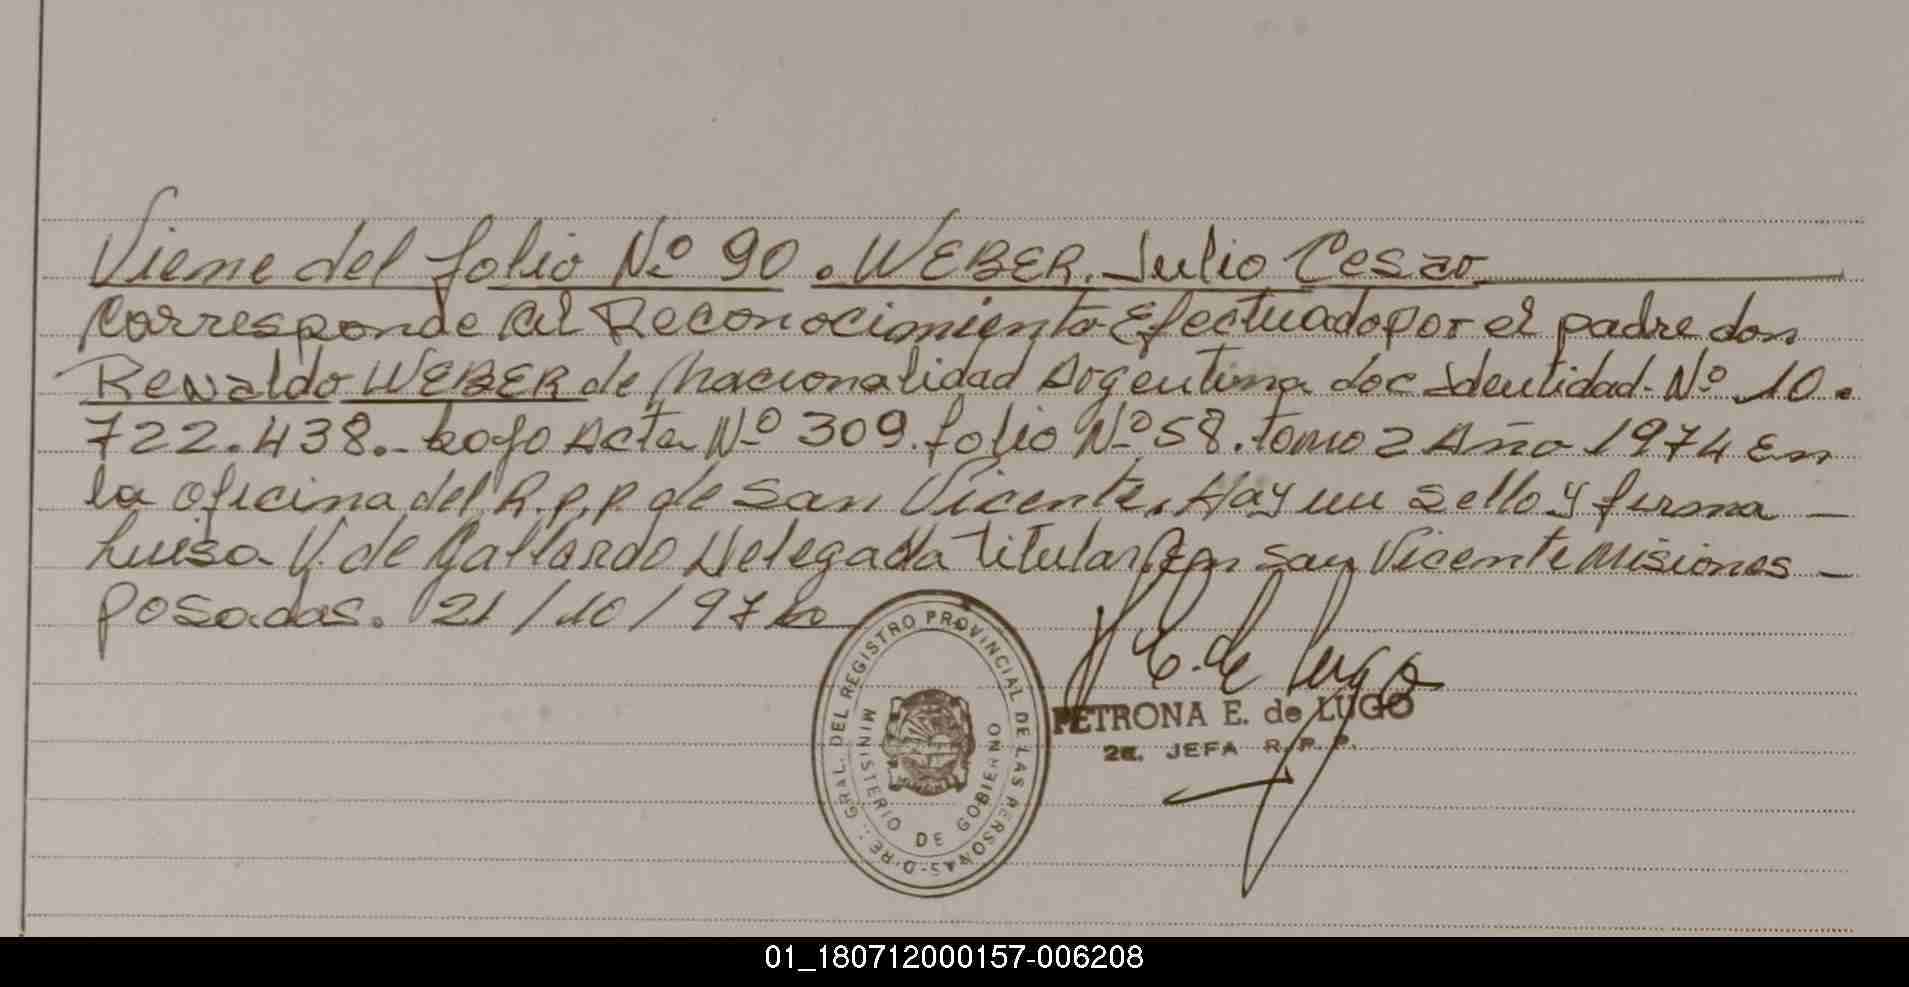 Viene del folio Nº 90. WEBER, Julio Cesar
Corresponde al Reconocimiento Efectuado por el padre don
Renaldo WEBER de Nacionalidad Argentina doc Identidad Nº 10.
722.438.- bajo Acta Nº 309. folio Nº 58. tomo 2 Año 1974 En
la oficina del R.P.P. de San Vicente. Hay un sello y firma -
Luisa V. de Gallardo Delegada Titular En San Vicente Misiones -
Posadas. 21/10/97
P E. de Lugo
PETRONA E. de LUGO
2a. JEFA R. P. P.
GRAL. DEL REGISTRO PROVINCIAL DE LAS PERSONAS
MINISTERIO DE GOBIERNO
01_180712000157-006208